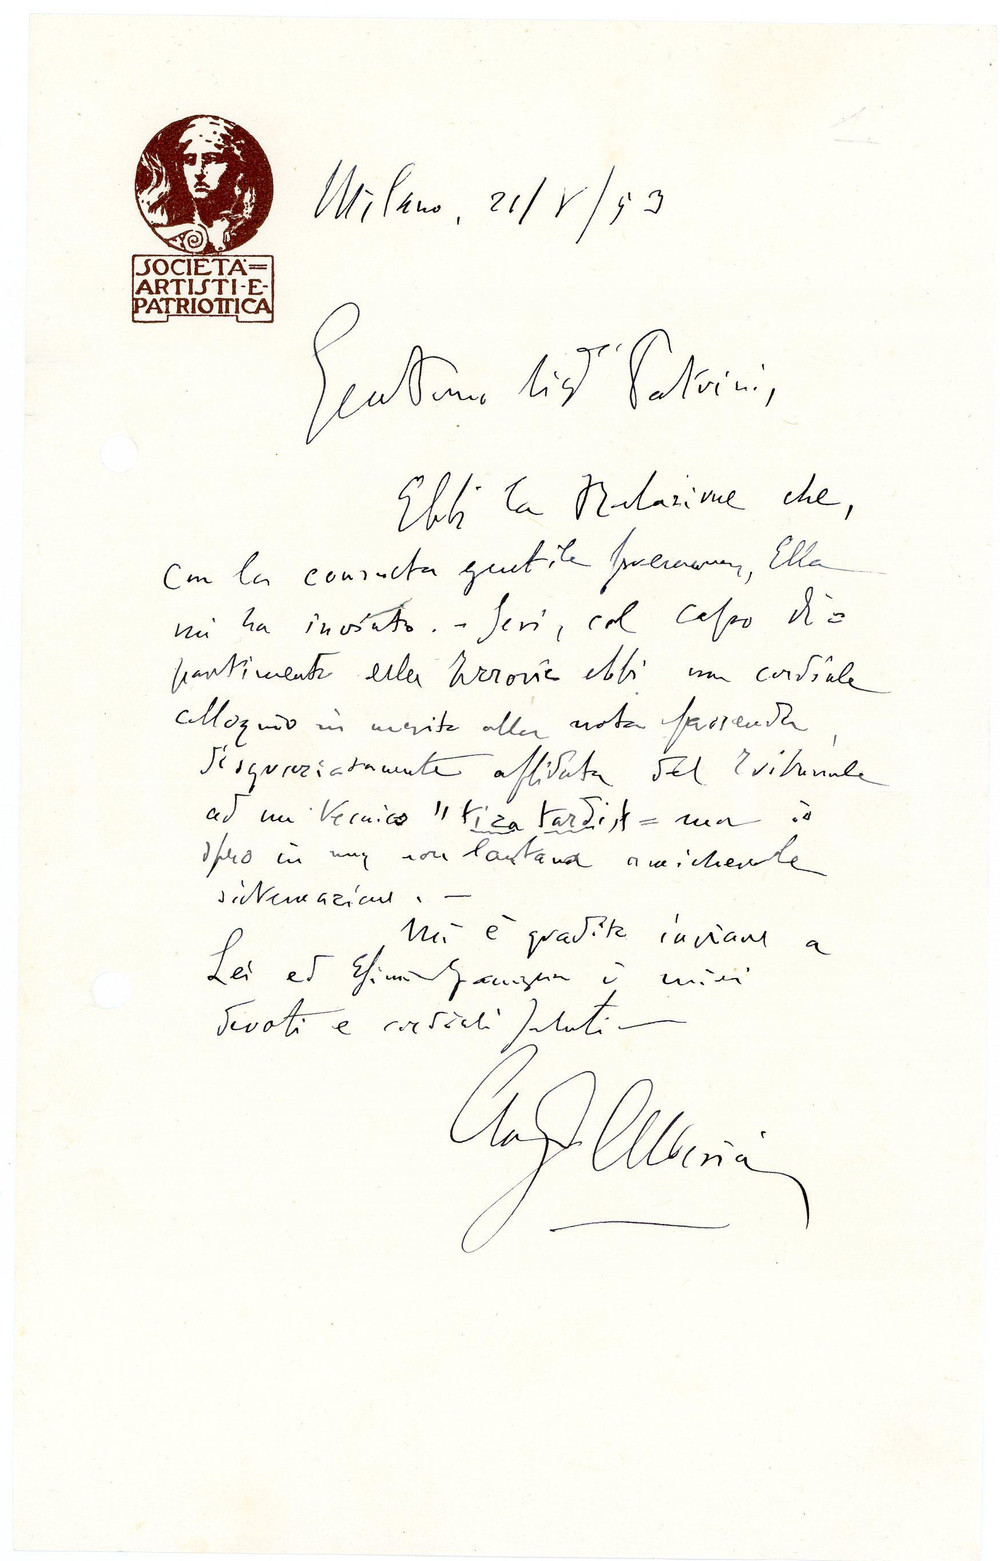 SOCIETÀ=
ARTISTI-E-
PATRIOTTICA
Milano, 21/V/53
Gent.mo Sig.r Patrini,
Ebbi la Relazione che,
con la consueta gentile premura, Ella
mi ha inviato. - Ieri, col capo di=
partimento della ferrovia ebbi un cordiale
colloquio in merito alla nota faccenda,
disgraziatamente affidata dal Tribunale
ad un tecnico "tira tardi" = ma io
spero in una non lontana amichevole
sistemazione. -
Mi è gradito inviare a
Lei ed i miei
devoti e cordiali saluti -